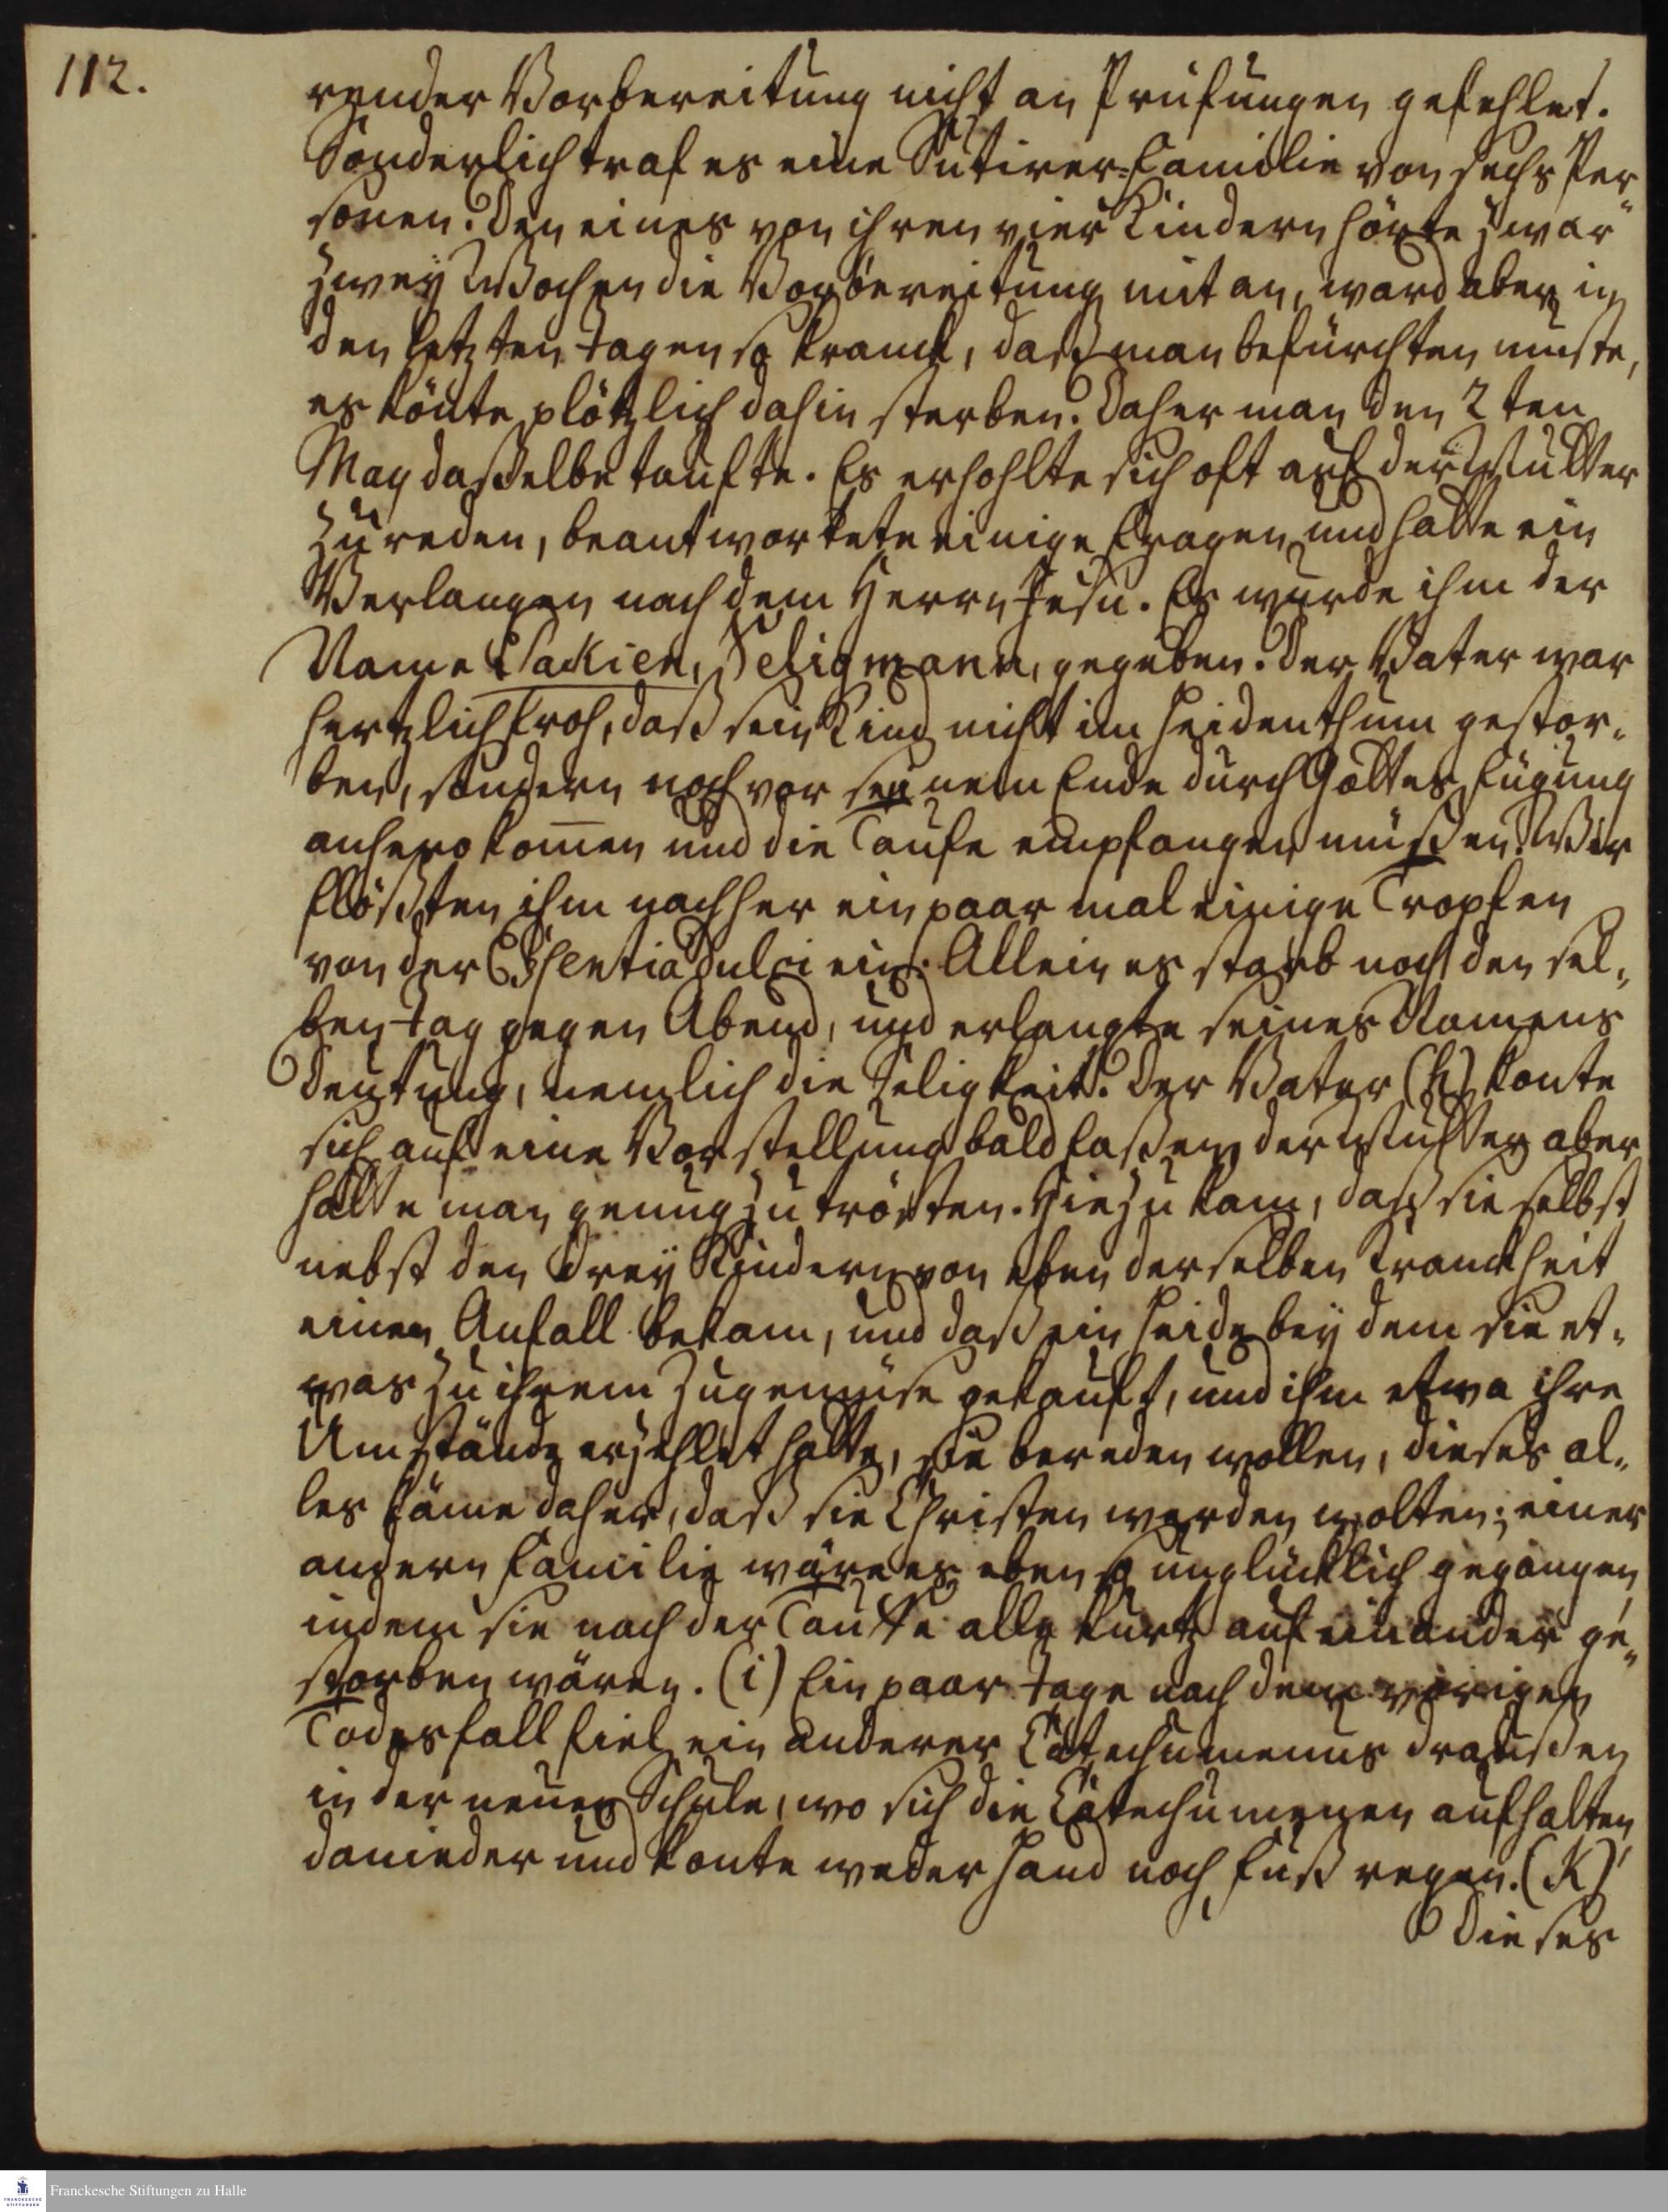 112.
render Vorbereitung nicht an Prüfungen gefehlet.
Sonderlich traf es eine Sutirer-Familie von sechs Per-
sonen. Den eines von ihren vier Kindern hörte zwar
zwey Wochen die Vorbereitung mit an, ward aber in
den letzten Tagen so kranck, daß man befürchten muste,
es könte plötzlich dahin sterben. Daher man den 2ten
May daßelbe taufte. Es erhohlte sich oft auf der Mutter
Zureden, beantwortete einige Fragen und hatte ein
Verlangen nach dem Herrn Jesu. Es wurde ihm der
Name Packien, Seligmann, gegeben. Der Vater war
hertzlich froh, daß sein Kind nicht im Heidenthum gestor-
ben, sondern noch vor seinem Ende durch Gottes Fügung
anhero komen und die Taufe empfangen müßen. Wir
flößten ihm nachher ein paar mal einige Tropfen
von der Essentia dulci ein. Allein es starb noch den sel-
ben Tag gegen Abend, und erlangte seines Namens
Deutung, nemlich die Seligkeit. Der Vater (h) konte
sich auf eine Vorstellung bald faßen, der Mutter aber
hatte man genug zu trösten. Hiezu kam, daß sie selbst
nebst den drey Kindern von eben derselben Kranckheit
einen Anfall bekam, und daß ein Heide bey dem sie et-
was zu ihrem Zugemüse gekauft, und ihm etwa ihre
Umstände erzehlet hatte, sie bereden wollen, dieses al-
les käme daher, daß sie Christen werden wolten; einer
andern Familie wäre es eben so unglücklich gegangen,
indem sie nach der Taufe alle kurtz auf einander ge-
storben wären. (i) Ein paar Tage nach dem vorigen
Todesfall fiel ein anderer Catechumenus draußen
in der neuen Schule, wo sich die Catechumenen aufhalten,
danieder und konte weder Hand noch Fuß regen. (K)
Dieses
Franckesche Stiftungen zu Halle
FRANCKESCHE STIFTUNGEN